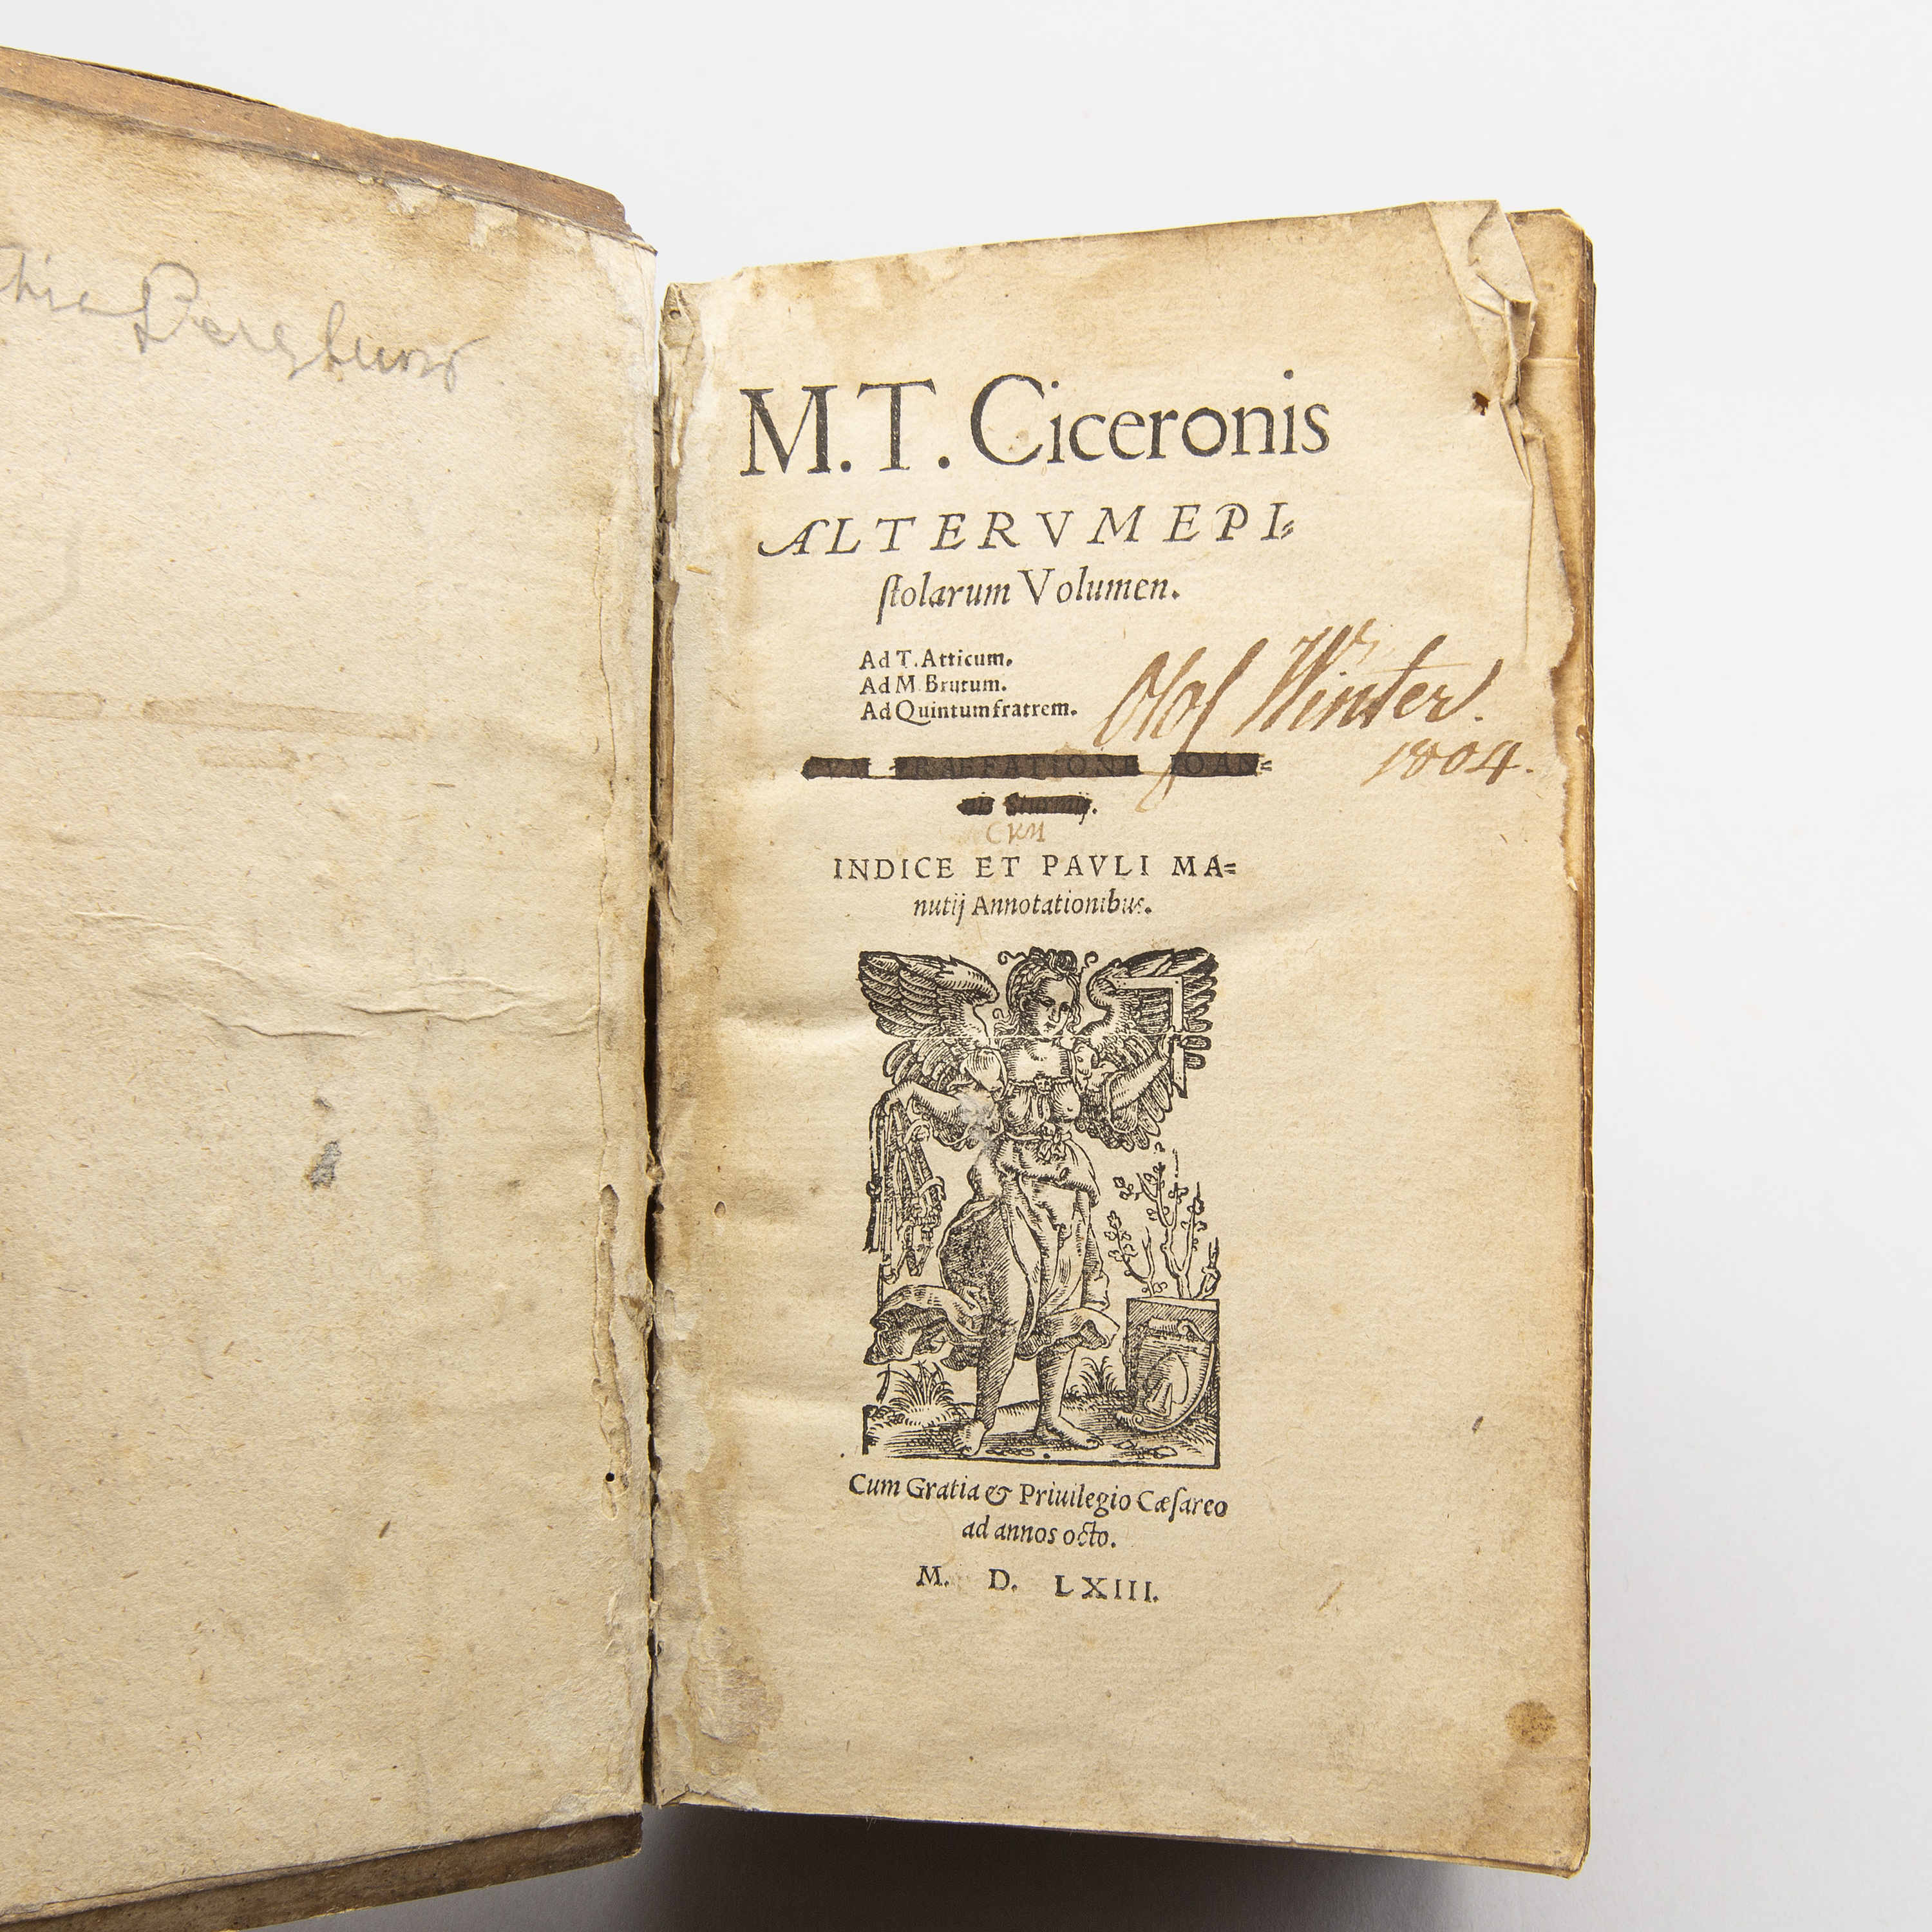 M.T. Ciceronis
ALTERVM EPI=
ſtolarum Volumen.
Ad T. Atticum.
Ad M Brutum.
Ad Quintum fratrem.
Olof Winter.
1804.
CVM PRAEFATIONE IOAN=
Sturmij.
CVM
INDICE ET PAVLI MA=
nutij Annotationibus.
Cum Gratia & Priuilegio Cæſareo
ad annos octo.
M. D. LXIII.